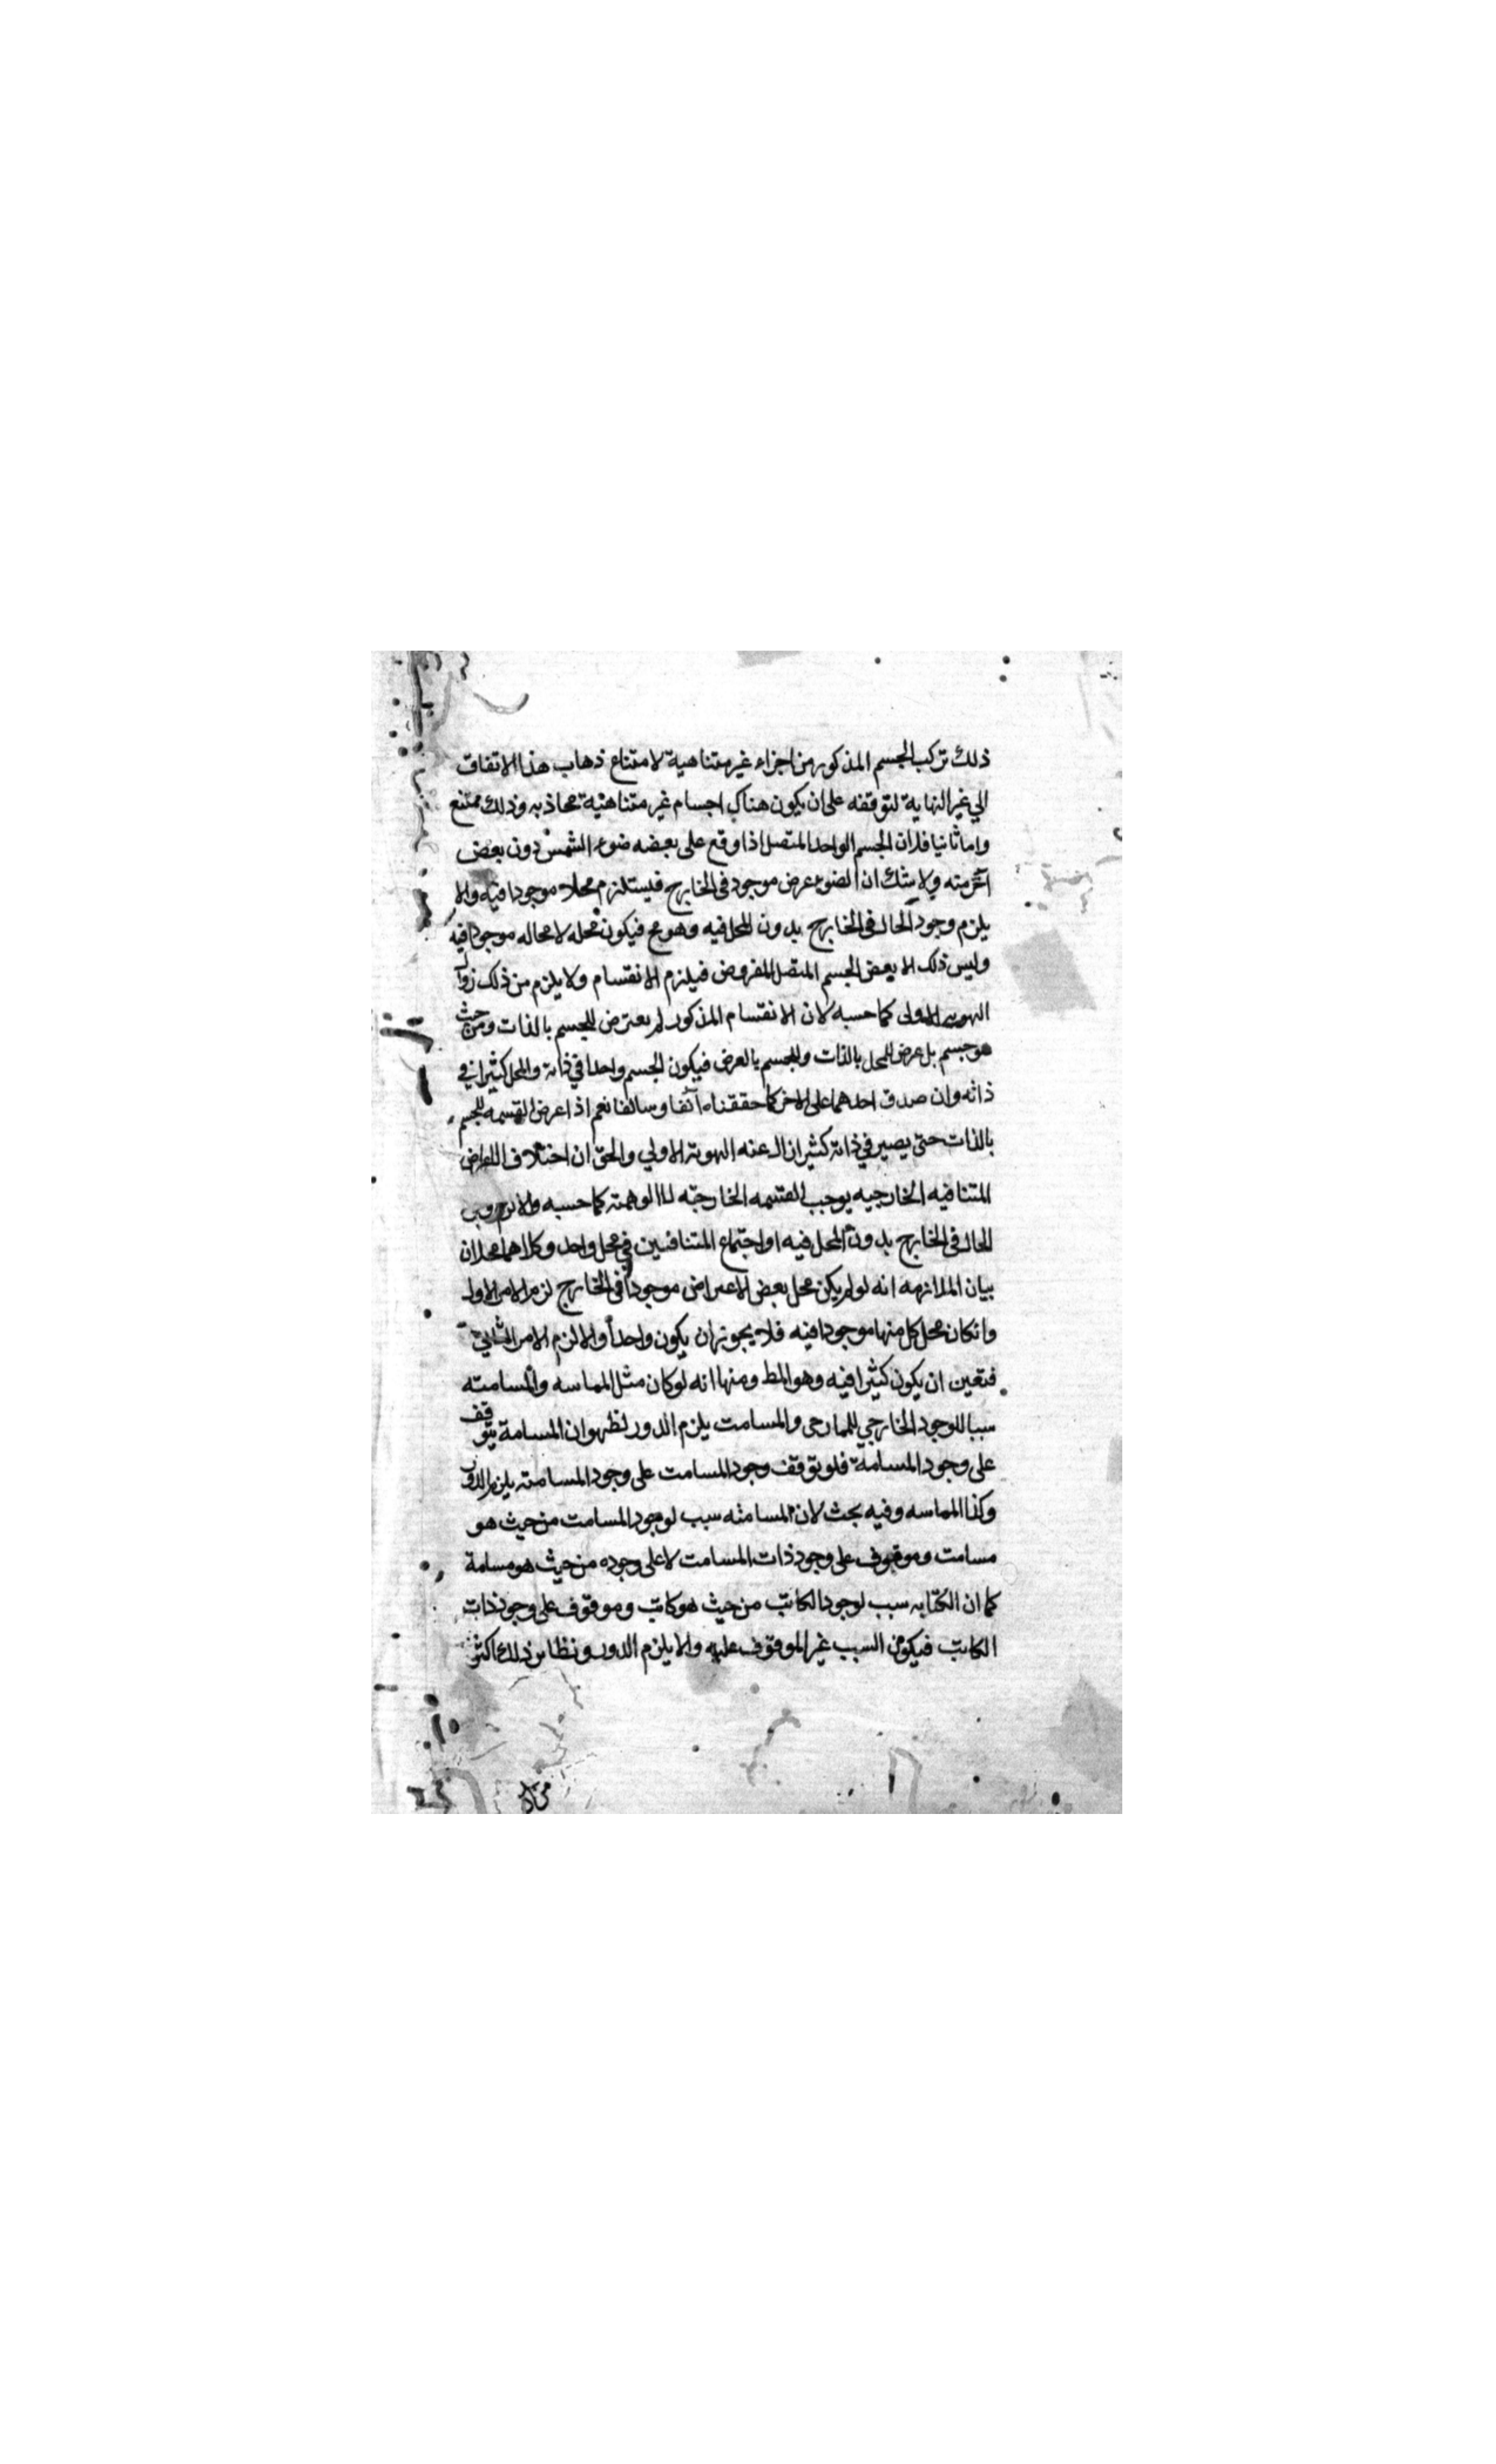 ذلك تركب الجسم المذكور من اجزاء غير متناهية لامتناع ذهاب هذا الاتفاق
الي غير النهاية لتوقفه على ان يكون هناك اجسام غير متناهية محاذيه وذلك ممتنع
واما ثانيا فلان الجسم الواحد المتصل اذا وقع على بعضه ضوء الشمس دون بعض
آخر منه ولا شك ان الضوء عرض موجود في الخارج فيستلزم محلا موجودا فيه والا
يلزم وجود الحال في الخارج بدون المحل فيه وهو مح فيكون محله لا محاله موجود فيه
وليس ذلك الا بعض الجسم المتصل المفروض فيلزم الانقسام ولا يلزم من ذلك زوال
الهويه الاولى كما حسبه لان الانقسام المذكور لم يعترض للجسم بالذات ومن حيث
هو جسم بل عرض للمحل بالذات وللجسم بالعرض فيكون الجسم واحدا في ذاته والمحل كثيرا في
ذاته وان صدق احدهما على الاخر كما حققناه آنفا وسالفا نعم اذا عرض القسمه للجسم
بالذات حتى يصير في ذاته كثيرا زال عنه الهوية الاولي والحق ان اختلاف الاعراض
المتنافيه الخارجيه يوجب القسمه الخارجيه لا الوهميه كما حسبه والا لزم
الحال في الخارج بدون المحل فيه او اجتماع المتنافيين في محل واحد وكلاهما محالان
بيان الملازمه انه لو لم يكن محل بعض الاعراض موجوداً في الخارج لزم الامر الاول
وان كان محل كل منها موجودا فيه فلا يجوز ان يكون واحداً والا لزم الامر الثاني
فتعين ان يكون كثيرا فيه وهو المط ومنها انه لو كان مثل المماسه والمسامته
سببا للوجود الخارجي والمسامت يلزم الدور لظهور ان المسامة يتوقف
على وجود المسامة فلو توقف وجود المسامت على وجود المسامته يلزم الدور
وكذا المماسه وفيه بحث لان المسامته سبب لوجود المسامت من حيث هو
مسامت وموقوف على وجود ذات المسامت لا على وجوده من حيث هو مسامة
كما ان الكتابه سبب لوجود الكاتب من حيث هو كاتب وموقوف على وجود ذات
الكاتب فيكون السبب غير الموقوف عليه ولا يلزم الدور ونظائر ذلك اكثر